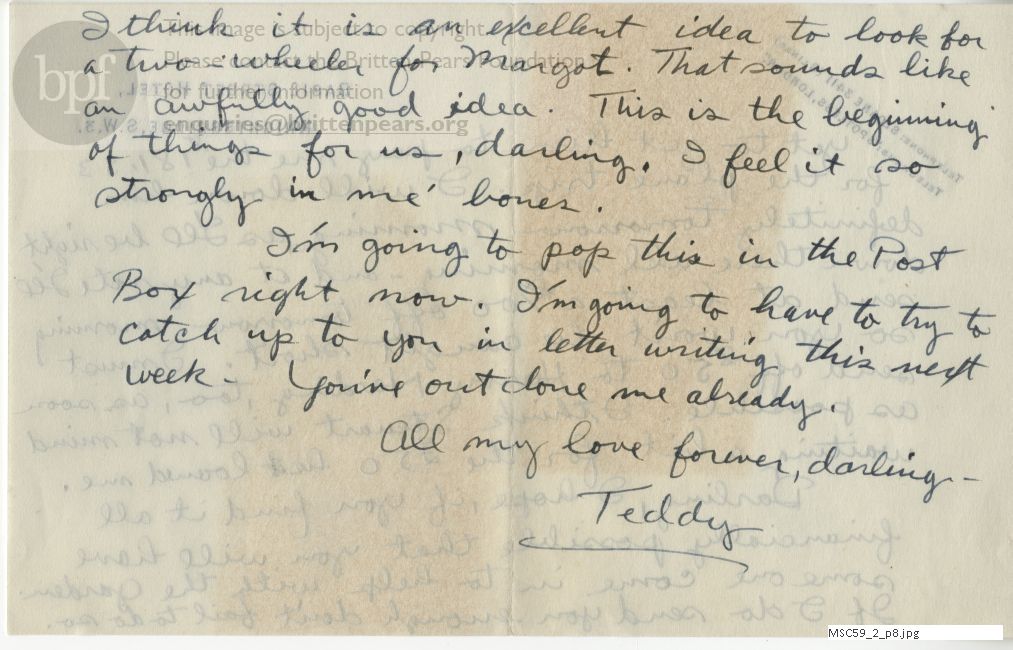 I think it is an excellent idea to look for
a two-wheeler for Margot. That sounds like
an awfully good idea. This is the beginning
of things for us, darling. I feel it so
strongly in me' bones.
I'm going to pop this in the Post
Box right now. I'm going to have to try to
catch up to you in letter writing this next
week – You've outdone me already.
All my love forever, darling –
Teddy
bpf
This image is subject to copyright
Please contact the Britten-Pears Foundation
for further information
enquiries@brittenpears.org
MSC59_2_p8.jpg